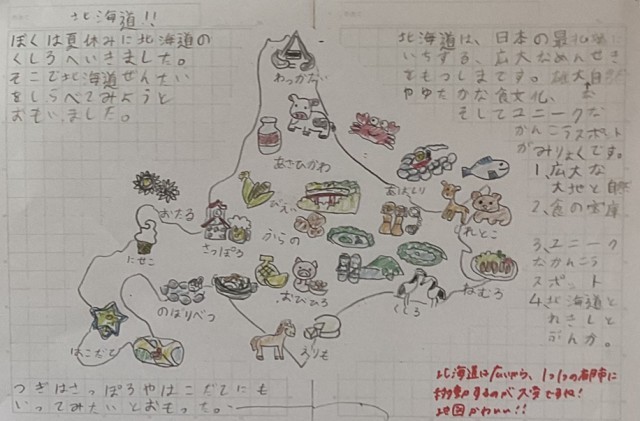 北海道!!
ぼくは夏休みに北海道の
くしろへいきました。
そこで北海道ぜんたい
をしらべてみようと
おもいました。
北海道は、日本の最北端に
いちする、広大なめんせき
をもつしまです。雄大自然
やゆたかな食文化、
そしてユニークな
かんこうスポット
がみりょくです。
1、広大な
大地と自然
2、食の宝庫
3、ユニーク
なかんこう
スポット
4、北海道と
れきしと
ぶんか。
わっかない
あさひかわ
あばしり
びえい
おたる
さっぽろ
からの
れとこ
にせこ
のぼりべつ
おびひろ
くしろ
ねむろ
はこだて
えりも
つぎはさっぽろやはこだてにも
いってみたいとおもった。
北海道は広いから、1つ1つの都市に
移動するのが大変ですね!
地図かわいい!!